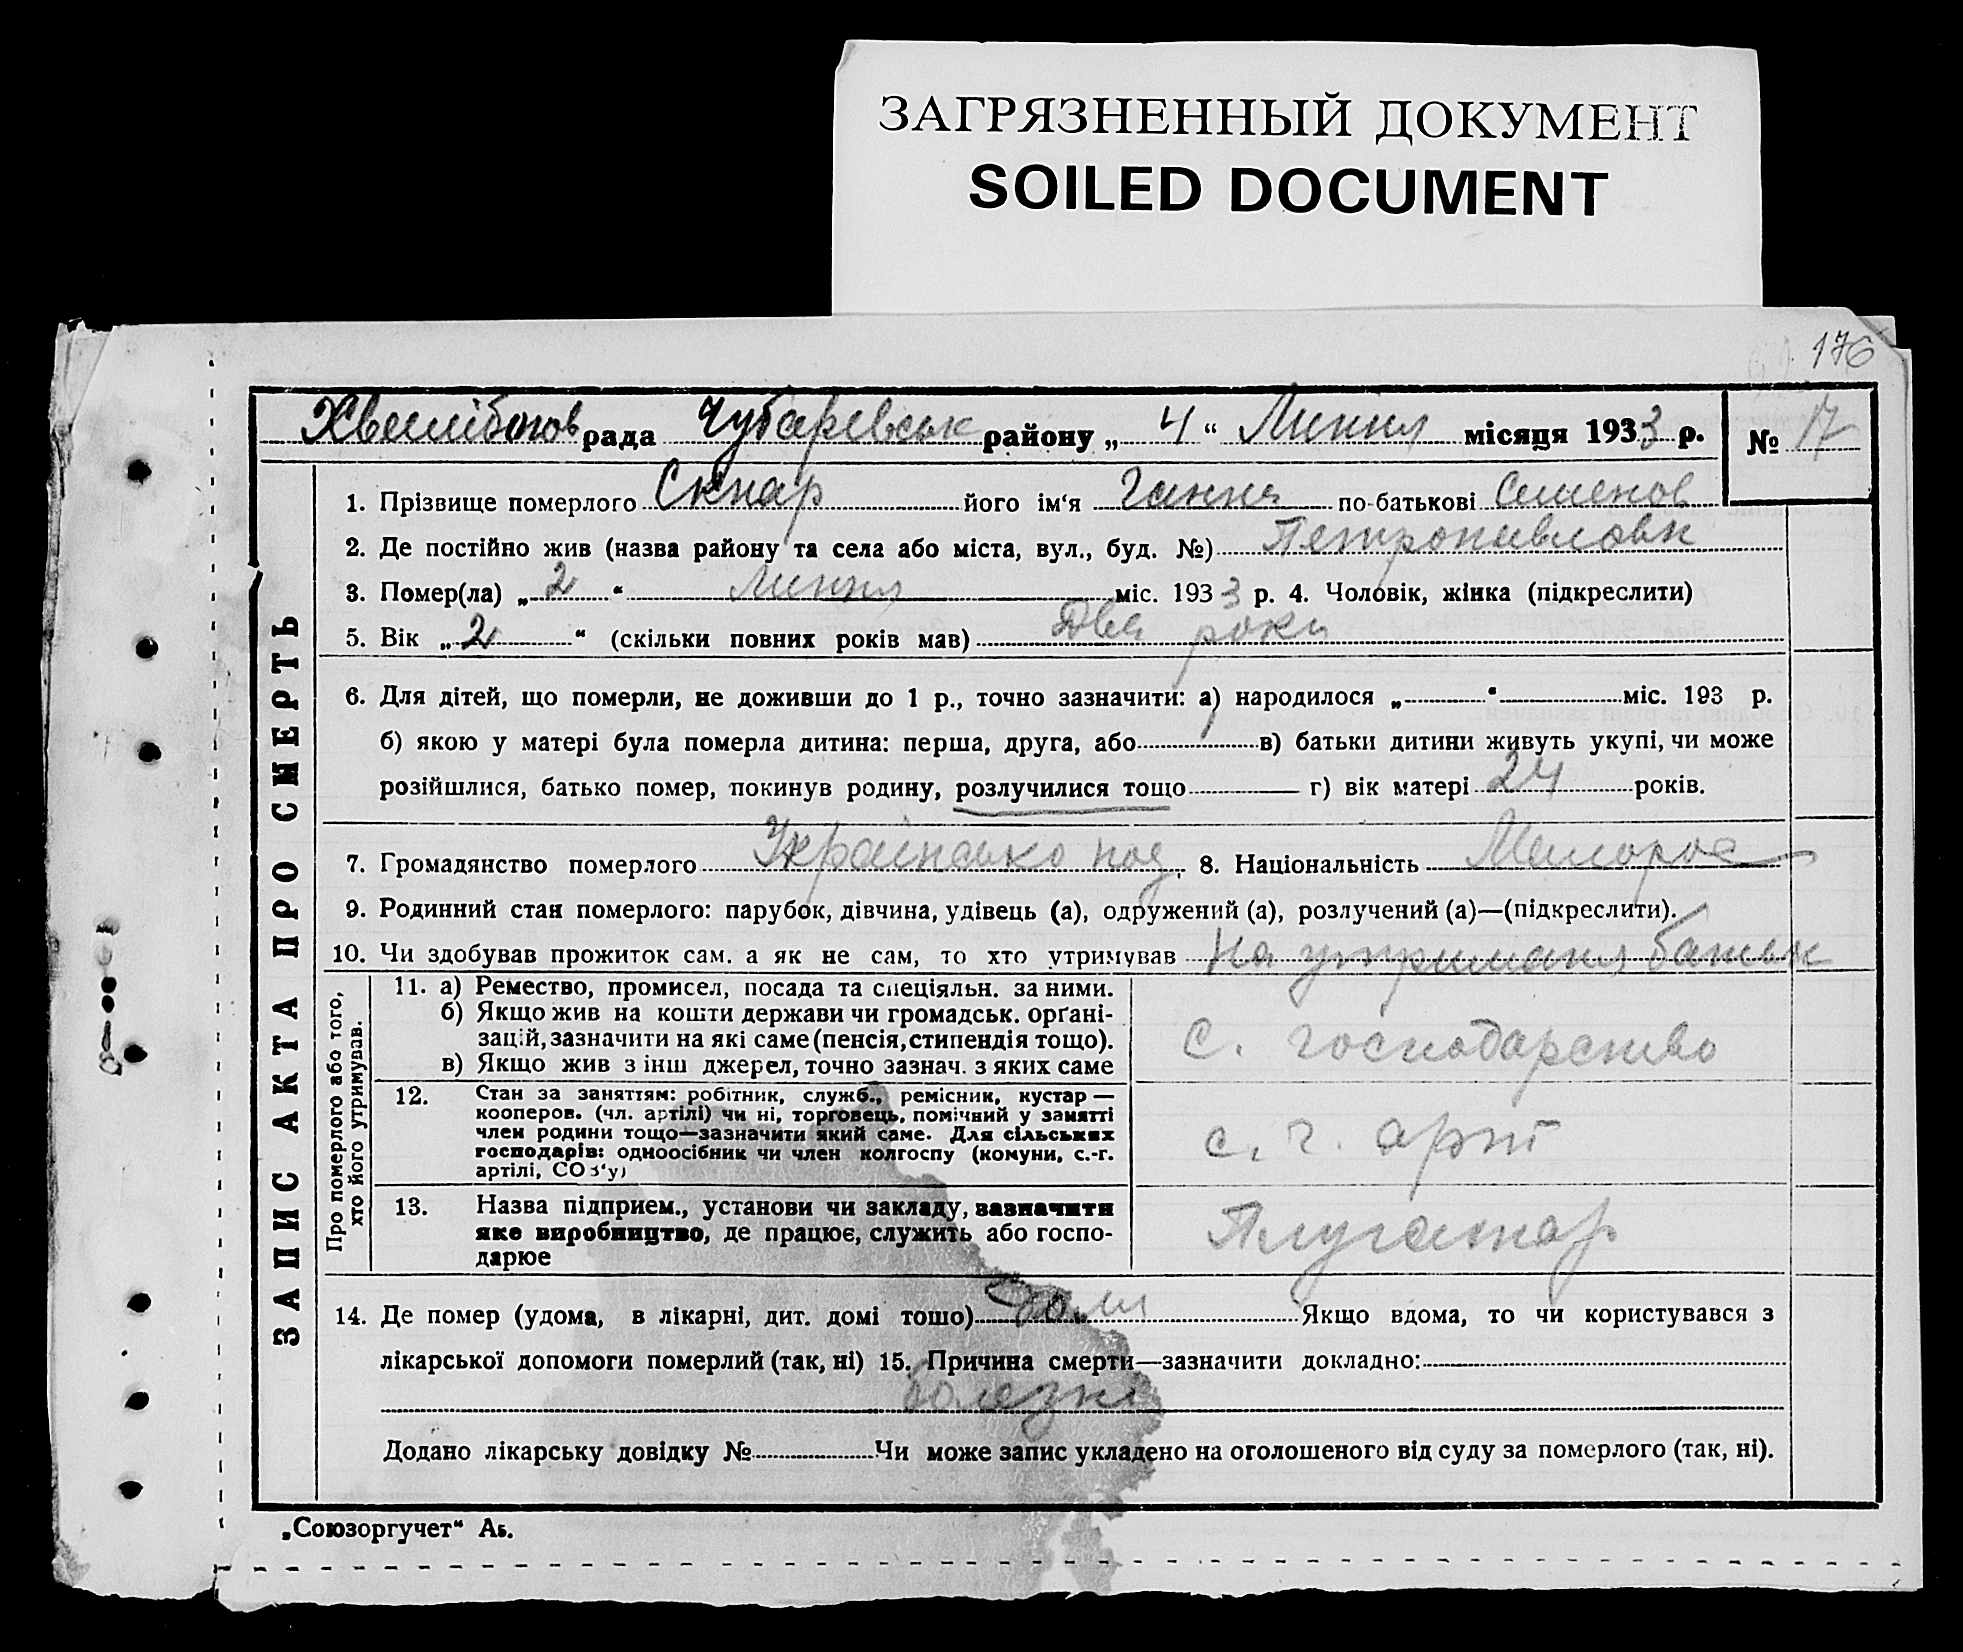 ЗАГРЯЗНЕННЫЙ ДОКУМЕНТ
SOILED DOCUMENT
176
рада Чубаревськ району „ 4 “ Липня місяця 1933 р. № 17
ЗАПИС АКТА ПРО СМЕРТЬ
1. Прізвище померлого Скпар його ім‘я Ганна по-батькові Семенов
2. Де постійно жив (назва району та села або міста, вул., буд. №) Петропавловк
3. Помер(ла) „ 2 “ липня міс. 1933 р. 4. Чоловік, жінка (підкреслити)
5. Вік „ 2 “ (скільки повних років мав) Два роки
6. Для дітей, що померли, не доживши до 1 р., точно зазначити: а) народилося „ “ міс. 193 р.
б) якою у матері була померла дитина: перша, друга, або в) батьки дитини живуть укупі, чи може
розійшлися, батько помер, покинув родину, розлучилися тощо г) вік матері 24 років.
7. Громадянство померлого Українсько под. 8. Національність Малорос
9. Родинний стан померлого: парубок, дівчина, удівець (а), одружений (а), розлучений (а)—(підкреслити).
10. Чи здобував прожиток сам, а як не сам, то хто утримував на утриманя батьк
Про померлого або того, хто його утримував.
11. а) Ремество, промисел, посада та спеціяльн. за ними.
б) Якщо жив на кошти держави чи громадськ. орґані-
зацій, зазначити на які саме (пенсія, стипендія тощо).
в) Якщо жив з інш джерел, точно зазнач. з яких саме
с. господарство
12. Стан за заняттям: робітник, служб., ремісник, кустар —
кооперов. (чл. артілі) чи ні, торговець, помічний у занятті
член родини тощо—зазначити який саме. Для сільських
господарів: одноосібник чи член колгоспу (комуни, с.-г.
артілі, СОЗ‘у)
с. г. арт
13. Назва підприєм., установи чи закладу, зазначити
яке виробництво, де працює, служить або госпо-
дарює
Плугатар
14. Де помер (удома, в лікарні, дит. домі тошо) дома Якщо вдома, то чи користувався з
лікарської допомоги померлий (так, ні) 15. Причина смерти—зазначити докладно:
болезні
Додано лікарську довідку № Чи може запис укладено на оголошеного від суду за померлого (так, ні).
„Союзоргучет“ Аб.